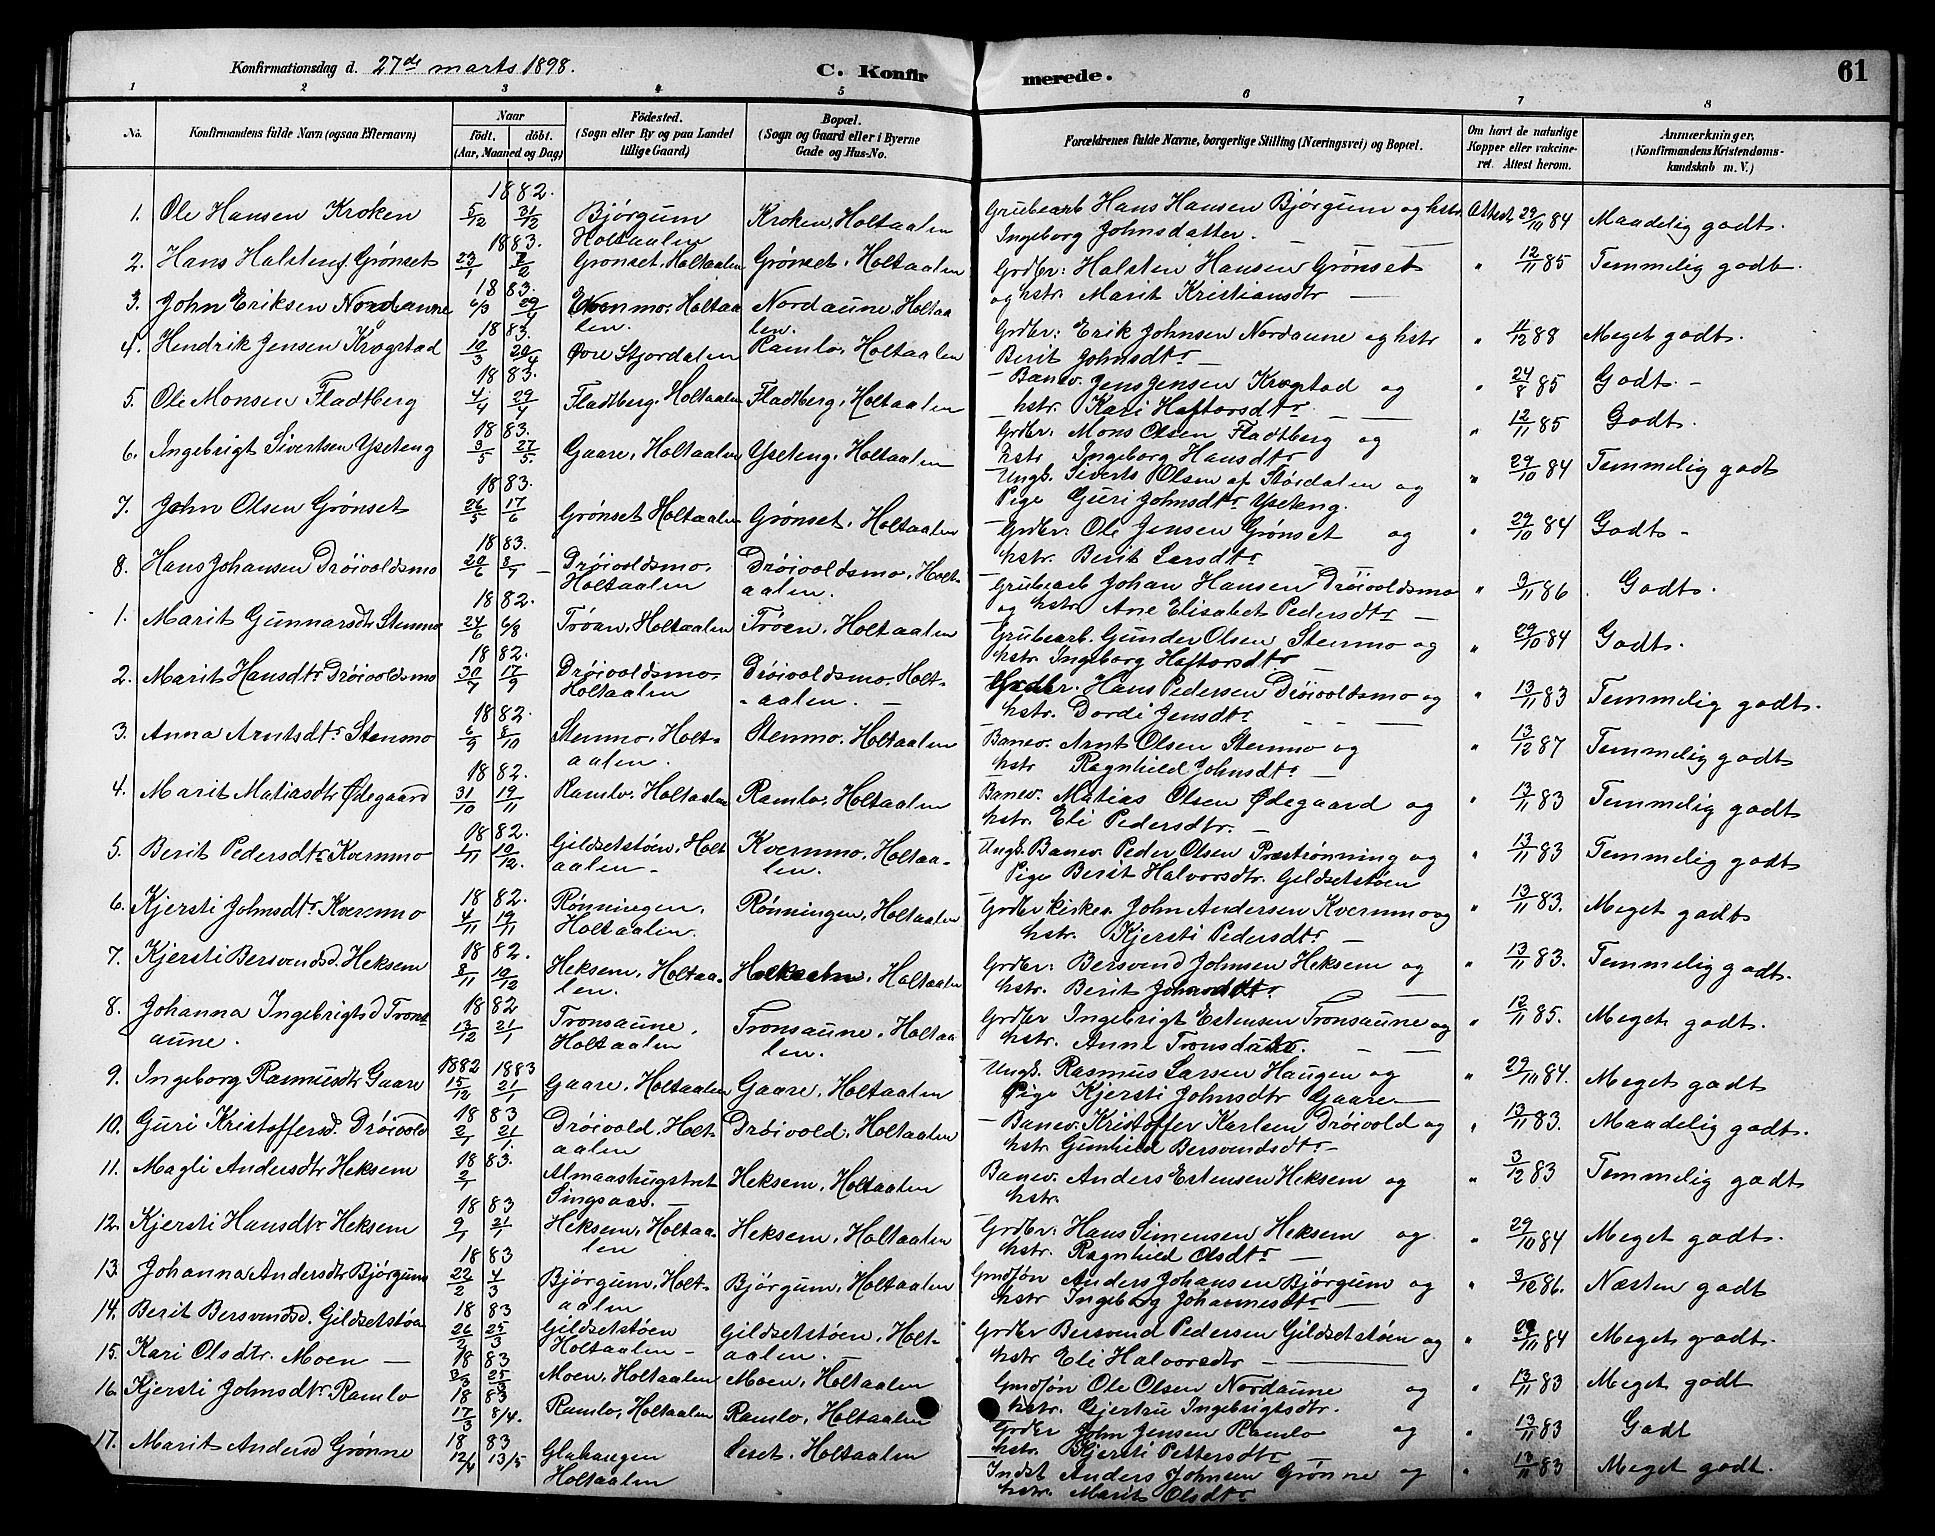 Konfirmationsdag d. 27de marts 1898. C. Konfir merede. 61
1 2 3 4 5 6 7 8
No. Konfirmandens fulde Navn (ogsaa Efternavn) Naar født. døbt. (Aar, Maaned og Dag) Fødested. (Sogn eller By og paa Landet tillige Gaard) Bopæl. (Sogn og Gaard eller i Byerne Gade og Hus-No. Forældrenes fulde Navne, borgerlige Stilling (Næringsvei) og Bopæl. Om havt de naturlige Kopper eller vakcineret. Attest herom. Anmærkninger. (Konfirmandens Kristendomskundskab m. V.)
1882.
1. Ole Hansen Kroken 5/12 31/12 Bjørgum Holtaalen Kroken, Holtaalen Grubearb Hans Hansen Bjørgum og hstr. Ingeborg Johnsdatter. — Attest 29/10 84 Maadelig godt.
1883.
2. Hans Halstens. Grønset 23/1 2/2 Grønset, Holtaalen Grønset, Holtaalen Grdbr: Halsten Hansen Grønset og hstr. Marit Kristiansdtr — " 12/11 85 Temmelig godt.
1883.
3. John Eriksen Nordaune 6/3 29/4 Evenmo, Holtaalen. Nordaune, Holtaalen. Grdbr: Erik Johnsen Nordaune og hstr Berit Johnsdtr — " 11/12 88 Meget godt.
1883.
4. Hendrik Jensen Krogstad 10/3 20/4 Øvre Stjordalen Ramlo, Holtaalen Banev. Jens Jensen Krogstad og hstr. Kari Haftorsdtr — " 24/8 85 Godt. -
1883.
5. Ole Monsen Fladtberg 4/4 29/4 Fladtberg, Holtaalen Fladtberg, Holtaalen Grdbr: Mons Olsen Fladtberg og hstr. Ingeborg Hansdtr " 12/11 85 Godt.
1883.
6. Ingebrigt Sivertsen Yseteng 3/5 27/5. Gaare, Holtaalen Yseteng, Holtaalen Ungk. Siverts Olsen af Størdalen og Pige Guri Johnsdtr Yseteng. " 29/10 84 Temmelig godt
1883.
7. John Olsen Grønset 26/5 17/6 Grønset Holtaalen Grønset, Holtaalen Grdbr: Ole Jensen Grønset og hstr. Berit Larsdtr " 29/10 84 Godt -
1883.
8. Hans Johansen Drøivoldsmo 20/6 8/7 Drøivoldsmo, Holtaalen Drøivoldsmo, Holtaalen. Grubearb Johan Hansen Drøivoldsmo og hstr. Ane Elisabet Pedersdtr — " 9/11 86. Godt.
1882.
1. Marit Gunnarsdtr Stenmo 24/6 6/8 Trøan, Holtaalen Trøen, Holtaalen Grubearb. Gunder Olsen Stenmo og hstr. Ingeborg Haftorsdtr " 29/10 84 Godt.
1882.
2. Marit Hansdtr Drøivoldsmo 30/7 17/9 Drøivoldsmo, Holtaalen Drøivoldsmo. Holtaalen. — Grdbr. Hans Pedersen Drøivoldsmo og hstr. Dordi Jensdtr " 13/11 83 Temmelig godt.
1882.
3. Anna Arntsdtr Stenmo 6/9 8/10 Stenmo, Holtaalen. Stenmo. Holtaalen Banev. Arnt Olsen Stenmo og hstr Ragnhild Johnsdtr — " 13/12 87 Temmelig godt
1882.
4. Marit Matiasdtr Ødegaard 31/10 19/11 Ramlo, Holtaalen Ramlo, Holtaalen Banev. Matias Olsen Ødegaard og hstr. Eli Pedersdtr. — " 13/11 83 Temmelig godt
1882.
5. Berit Pedersdtr Kvernmo 1/11 10/12. Gildsetstøen, Holtaalen - Kvernmo, Holtaalen. Ungk. Banev. Peder Olsen Præstrønning og Pige Berit Halvorsdtr. Gildsetstøen " 13/11 83 Temmelig godt
1882.
6. Kjersti Johnsdtr Kverenmo 4/11 19/11 Rønningen, Holtaalen. Rønningen, Holtaalen Grdbr kirkes. John Andersen Kvernmo og hstr. Kjersti Pedersdtr — " 13/11 83. Meget godt
1882.
7. Kjersti Bersvendsd. Heksem 8/11 10/12 Heksem, Holtaalen. Heksem, Holtaalen Grdbr: Bersvend Johnsen Heksem og hstr. Berit Johnsdtr — " 13/11 83. Temmelig godt.
1882
8. Johanna Ingebrigtsd Tronsaune. 13/12 21/1 Tronsaune, Holtaalen Tronsaune, Holtaalen. Grdbr Ingebrigt Estensen Tronsaune og hstr. Anne Tronsdatr. — " 12/11 85. Meget godt.
1882 1883
9. Ingeborg Rasmusdtr Gaare 15/12 21/1 Gaare, Holtaalen Gaare, Holtaalen Ungk. Rasmus Larsen Haugen og Pige Kjersti Johnsdtr Gaare — " 29/10 84. Meget godt
1883
10. Guri Kristoffersd. Drøivold 2/1 21/1. Drøivold, Holtaalen Drøivold, Holtaalen — Banev. Kristoffer Karlsen Drøivold og hstr. Gunhild Bersvendsdtr — " 13/11 83. Maadelig godt.
1883.
11. Magli Andersdtr Heksem 2/1 Almaashugstret Singsaas. — Heksem, Holtaalen Banev. Anders Estensen Heksem og hstr. " 3/12 83 Temmelig godt
1883
12. Kjersti Hansdtr Heksem 9/1 21/1 Heksem, Holtaalen Heksem, Holtaalen Grdbr: Hans Simensen Heksem og hstr. Ragnhild Olsdtr — " 29/10 84 Meget godt.
1883
13 Johanna Andersdtr Bjørgum 22/2 4/3 Bjørgum, Holtaalen Bjørgum, Holtaalen Gmdsøn Anders Johansen Bjørgum og hstr Ingeborg Johannesdtr — " 3/12 86. Næsten godt
1883
14. Berit Bersvendsd. Gildsetstøa 26/2 25/3 Gildsetstøen Holtaalen - Gildsetstøen, Holtaalen. — Grdbr Bersvend Pedersen Gildsetstøen og hstr Eli Halvorsdtr — " 29/11 84 Meget godt.
1883
15. Kari Olsdtr. Moen — 3/3 25/3 Moen, Holtaalen Moen, Holtaalen Gmdsøn Ole Olsen Nordaune og hstr. Gjertru Ingebrigtsdtr. " 13/11 83 Meget godt
1883
16. Kjersti Johnsdtr Ramlo 17/3 8/4. Ramlo, Holtaalen Ramlo, Holtaalen Grdbr John Jensen Ramlo og hstr. Kjersti Pettersdtr " 13/11 83 Godt
1883
17. Marit Andersd Grønne 12/4 13/5 Glahaugen Holtaalen Leset. Holtaalen Indst Anders Johnsen Grønne og hstr. Marit Olsdtr " 13/11 83 Meget godt.